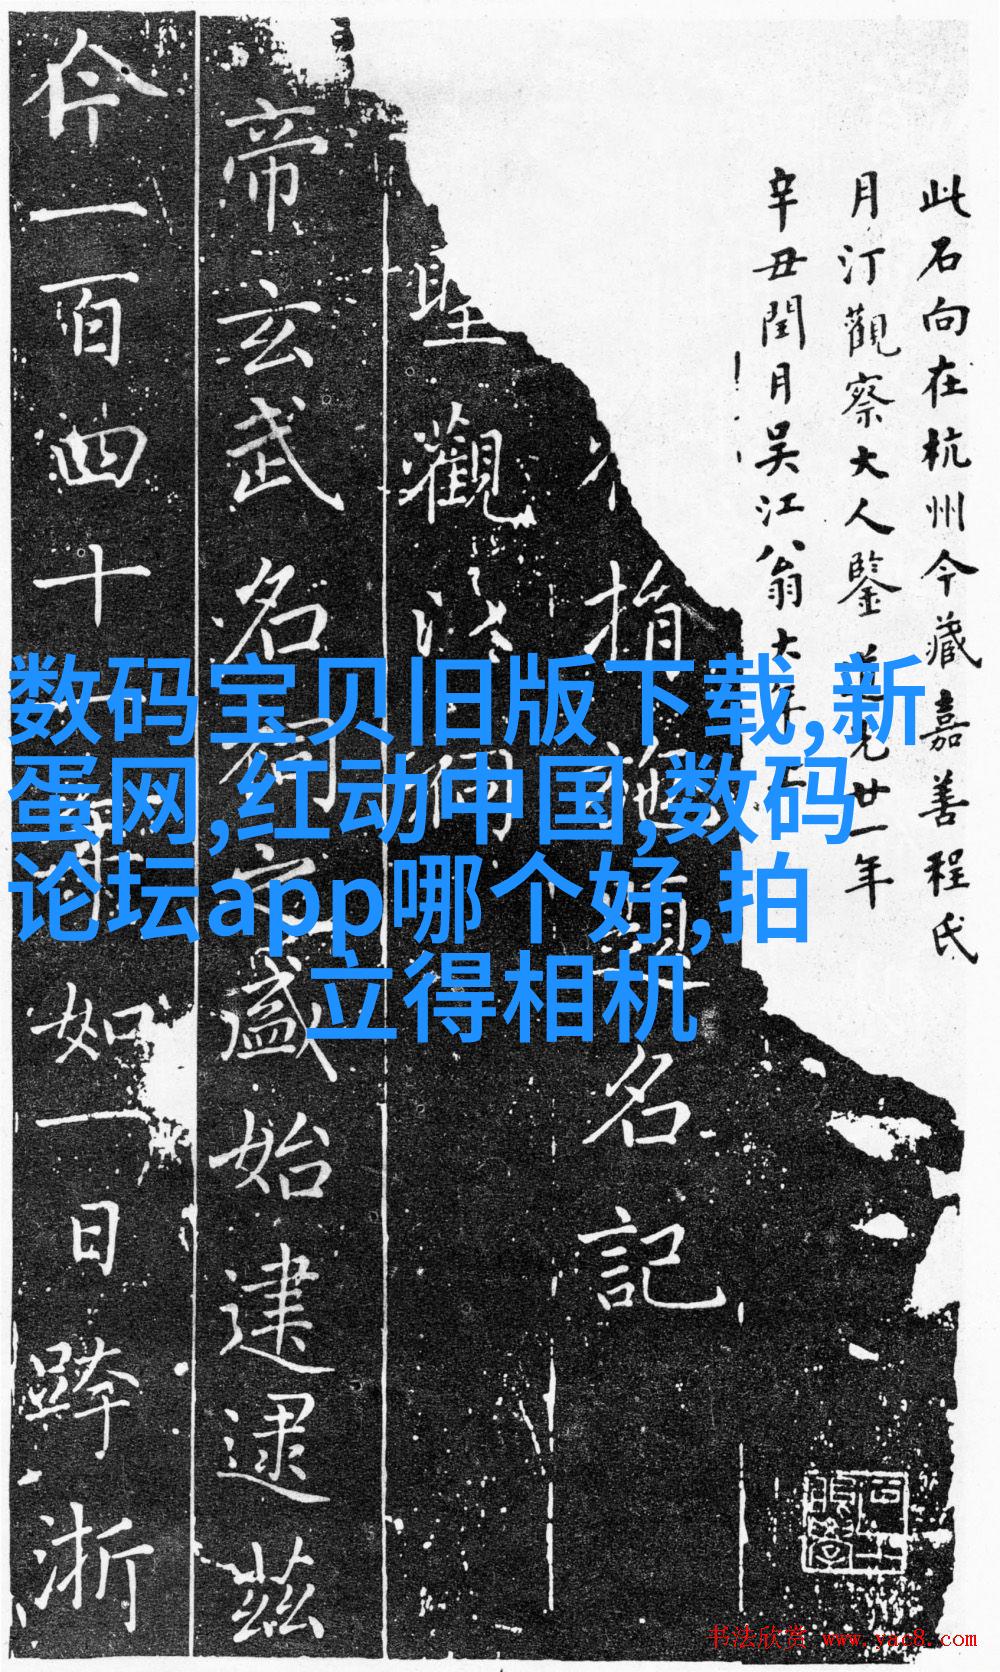 数码宝贝旧版下载,新
蛋网,红动中国,数码
论坛app哪个好,拍
立得相机
此石向在杭州今藏嘉善程氏
月汀觀察大人鑒道光廿一年
辛丑閏月吳江翁大年
指題名記
聖觀
帝玄武名祠之盛始建逮茲
今一百四十如一日跨浙
书法欣赏 www.yac8.com